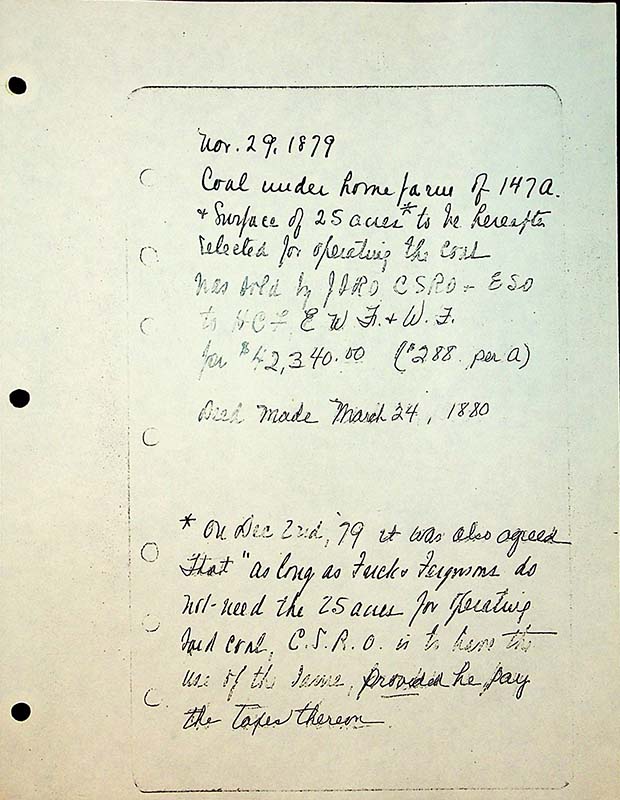 Nov. 29, 1879
Coal under home farm of 147 a.
& Surface of 25 acres* to be hereafter
selected for operating the coal
was sold by CSRO & ESO
to H C F, E W F. & W. F.
for $42,340.00 ($288 per a)
Deed made March 24, 1880
* On Dec 2nd, '79 it was also agreed
that "as long as Frick & Fergusons do
not need the 25 acres for operating
said coal, C.S.R.O. is to have the
use of the same, provided he pay
the taxes thereon